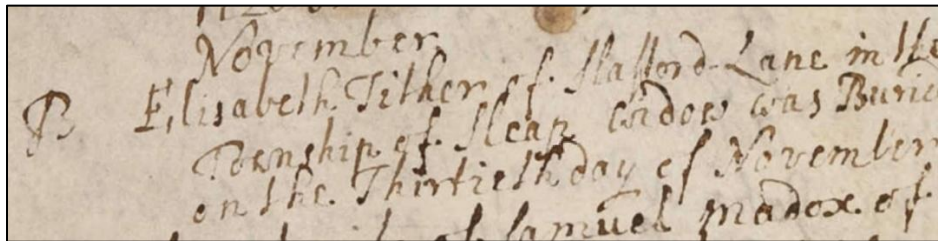 November
B Elisabeth Tither of Stafford Lane in the
Township of Sleap widow was Buried
on the Thirtieth day of November
of Samuel Madox of